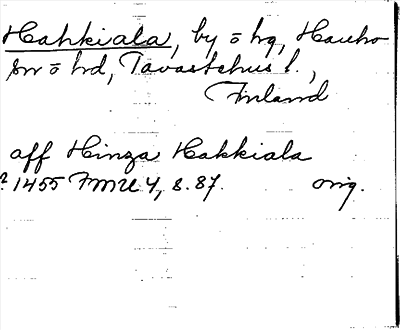 Hahkiala, by o hg, Hauho
sn o hd, Tavastehus l.,
Finland
aff Hinza Hakkiala
? 1455 FMU 4, s. 87. orig.